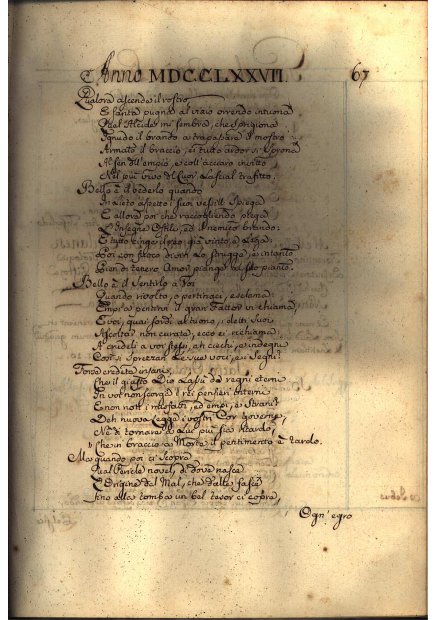 Anno MDCCLXXVII. 67
Qualora ascende il rostro,
E santa pugna al vizio orrendo intuona
Qual Alcide mi sembra, che
Ignudo il brando a trapassare il mostro
Armato il braccio, e tutto ardor si
Al sen dell'empio, e coll'acciaro invitto
Nel più vivo del Cuor Lascial trafitto.
Bello è il vederlo quando
In Lieto aspetto i suoi vessilli spiega
E allora poi che raccogliendo piega
L'Insegne Ostili, ed il nemico brando:
E tutto cinge il reo, già vinto, a Lega:
Poi con flora si strugge, e intanto
Pien di tenero Amor piange al suo pianto.
Bello è il sentirlo a Voi
Quando rivolto, o pertinaci, esclama
Empi, a pentirvi il gran Fattor vi chiama,
E voi, quai sordi al tuono, i detti suoi
Ascoltar non curate, ecco ei richiama:
A crudeli a voi stessi, ah ciechi, e indegni
Così si sprezzan Le sue voci, e i segni?
Forse credete insani,
Che il giusto Dio Lassù da regni eterni
In voi non scorga i rei pensieri interni
E non noti i misfatti, ed empi, e strani?
Deh nuova Legge i vostri Cor governe,
Nè di tornare a Lui più sia ritardo,
Che in braccio a Morte il pentimento è tardo.
Ma quando poi ci scopra
Qual Pericle novel, di dove nasca
L'Origine del Mal, che dalle fasce
Sino alla tomba un bel tesor ci copra,
Ogn' egro